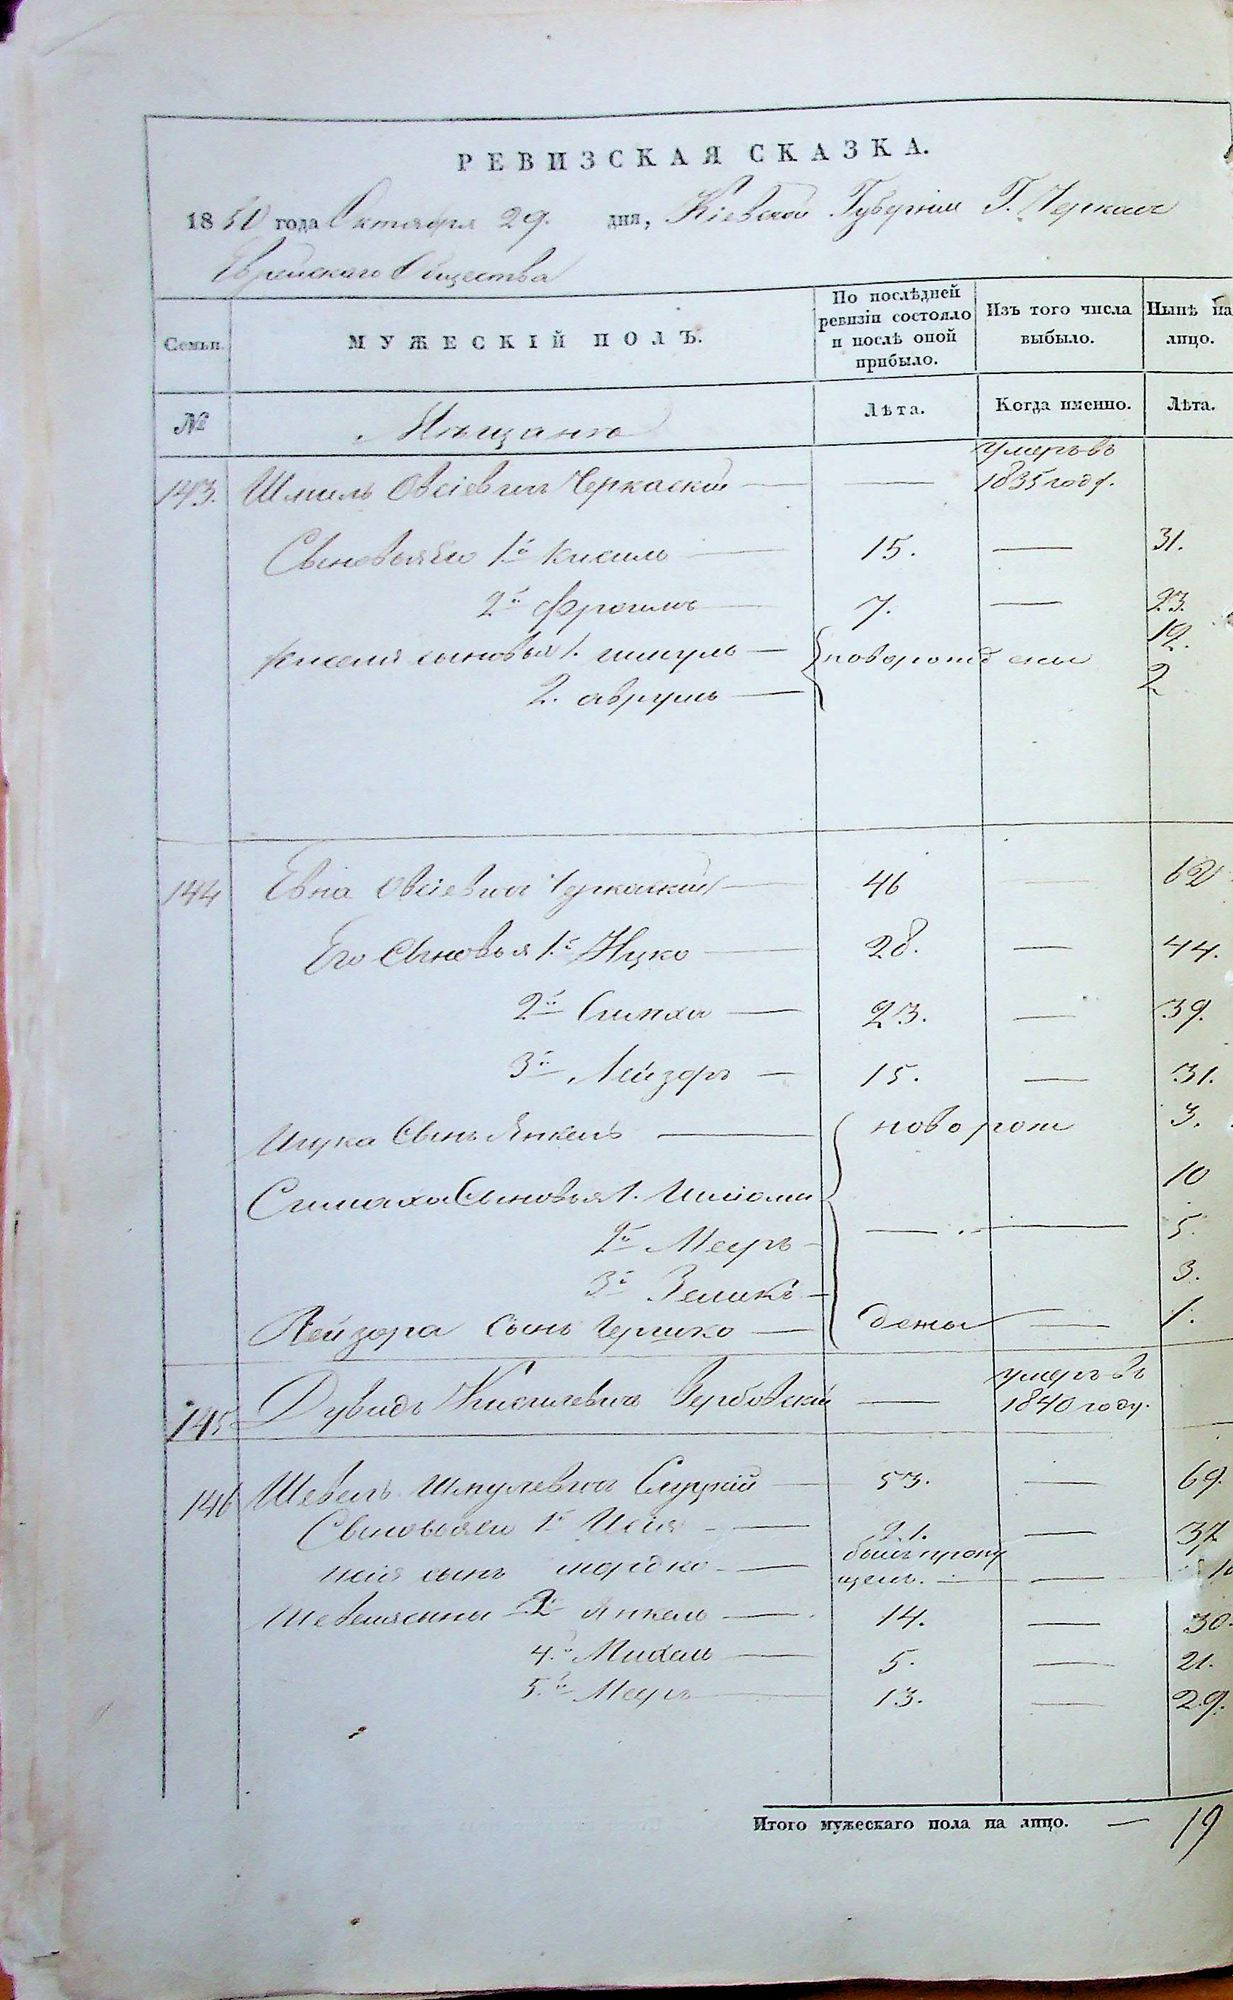 РЕВИЗСКАЯ СКАЗКА.
1850 года Октября 29. дня, Кіевской Губерніи Г. Черкасъ
Еврейскаго Общества
Семьи. МУЖЕСКІЙ ПОЛЪ. По послѣдней ревизіи состояло и послѣ оной прибыло. Изъ того числа выбыло. Нынѣ на лицо.
№ Мѣщане Лѣта. Когда именно. Лѣта.
143. Шмиль Овсіевичъ Черкаскій — — умеръ въ 1835 году.
Сыновья его 1й Кисиль — 15. — 31.
2й Фроимъ — 7. — 23.
Киселя сыновья 1. шмуль — новорождены 12.
2. аврумъ — 2
144 Евна Овсіевичъ Черкаскій — 46 — 62
Его Сыновья 1й Ицко — 28. — 44.
2й Симха — 23. — 39.
3й Лейзоръ — 15. — 31.
Ицка Сынъ Янкель — новорож 3.
Симаха Сыновья 1. 10
2й Мееръ — — . — 5.
3й Зеликъ — 3.
Лейзора Сынъ Гершко — дены — 1.
145 Дувидъ Кисилевичъ Вербовскій — умеръ въ 1840 году.
146 Шевель Шмулевичъ Слуцкій — 53. — 69.
Сыновья его 1й Исія — 21. — 37
Исія сынъ мордко — былъ пропущенъ. — —
Шевеля сыны Янкель — 14. — 30.
4й Михель — 5. — 21.
5й Мееръ — 13. — 29.
Итого мужескаго пола на лицо. — 19